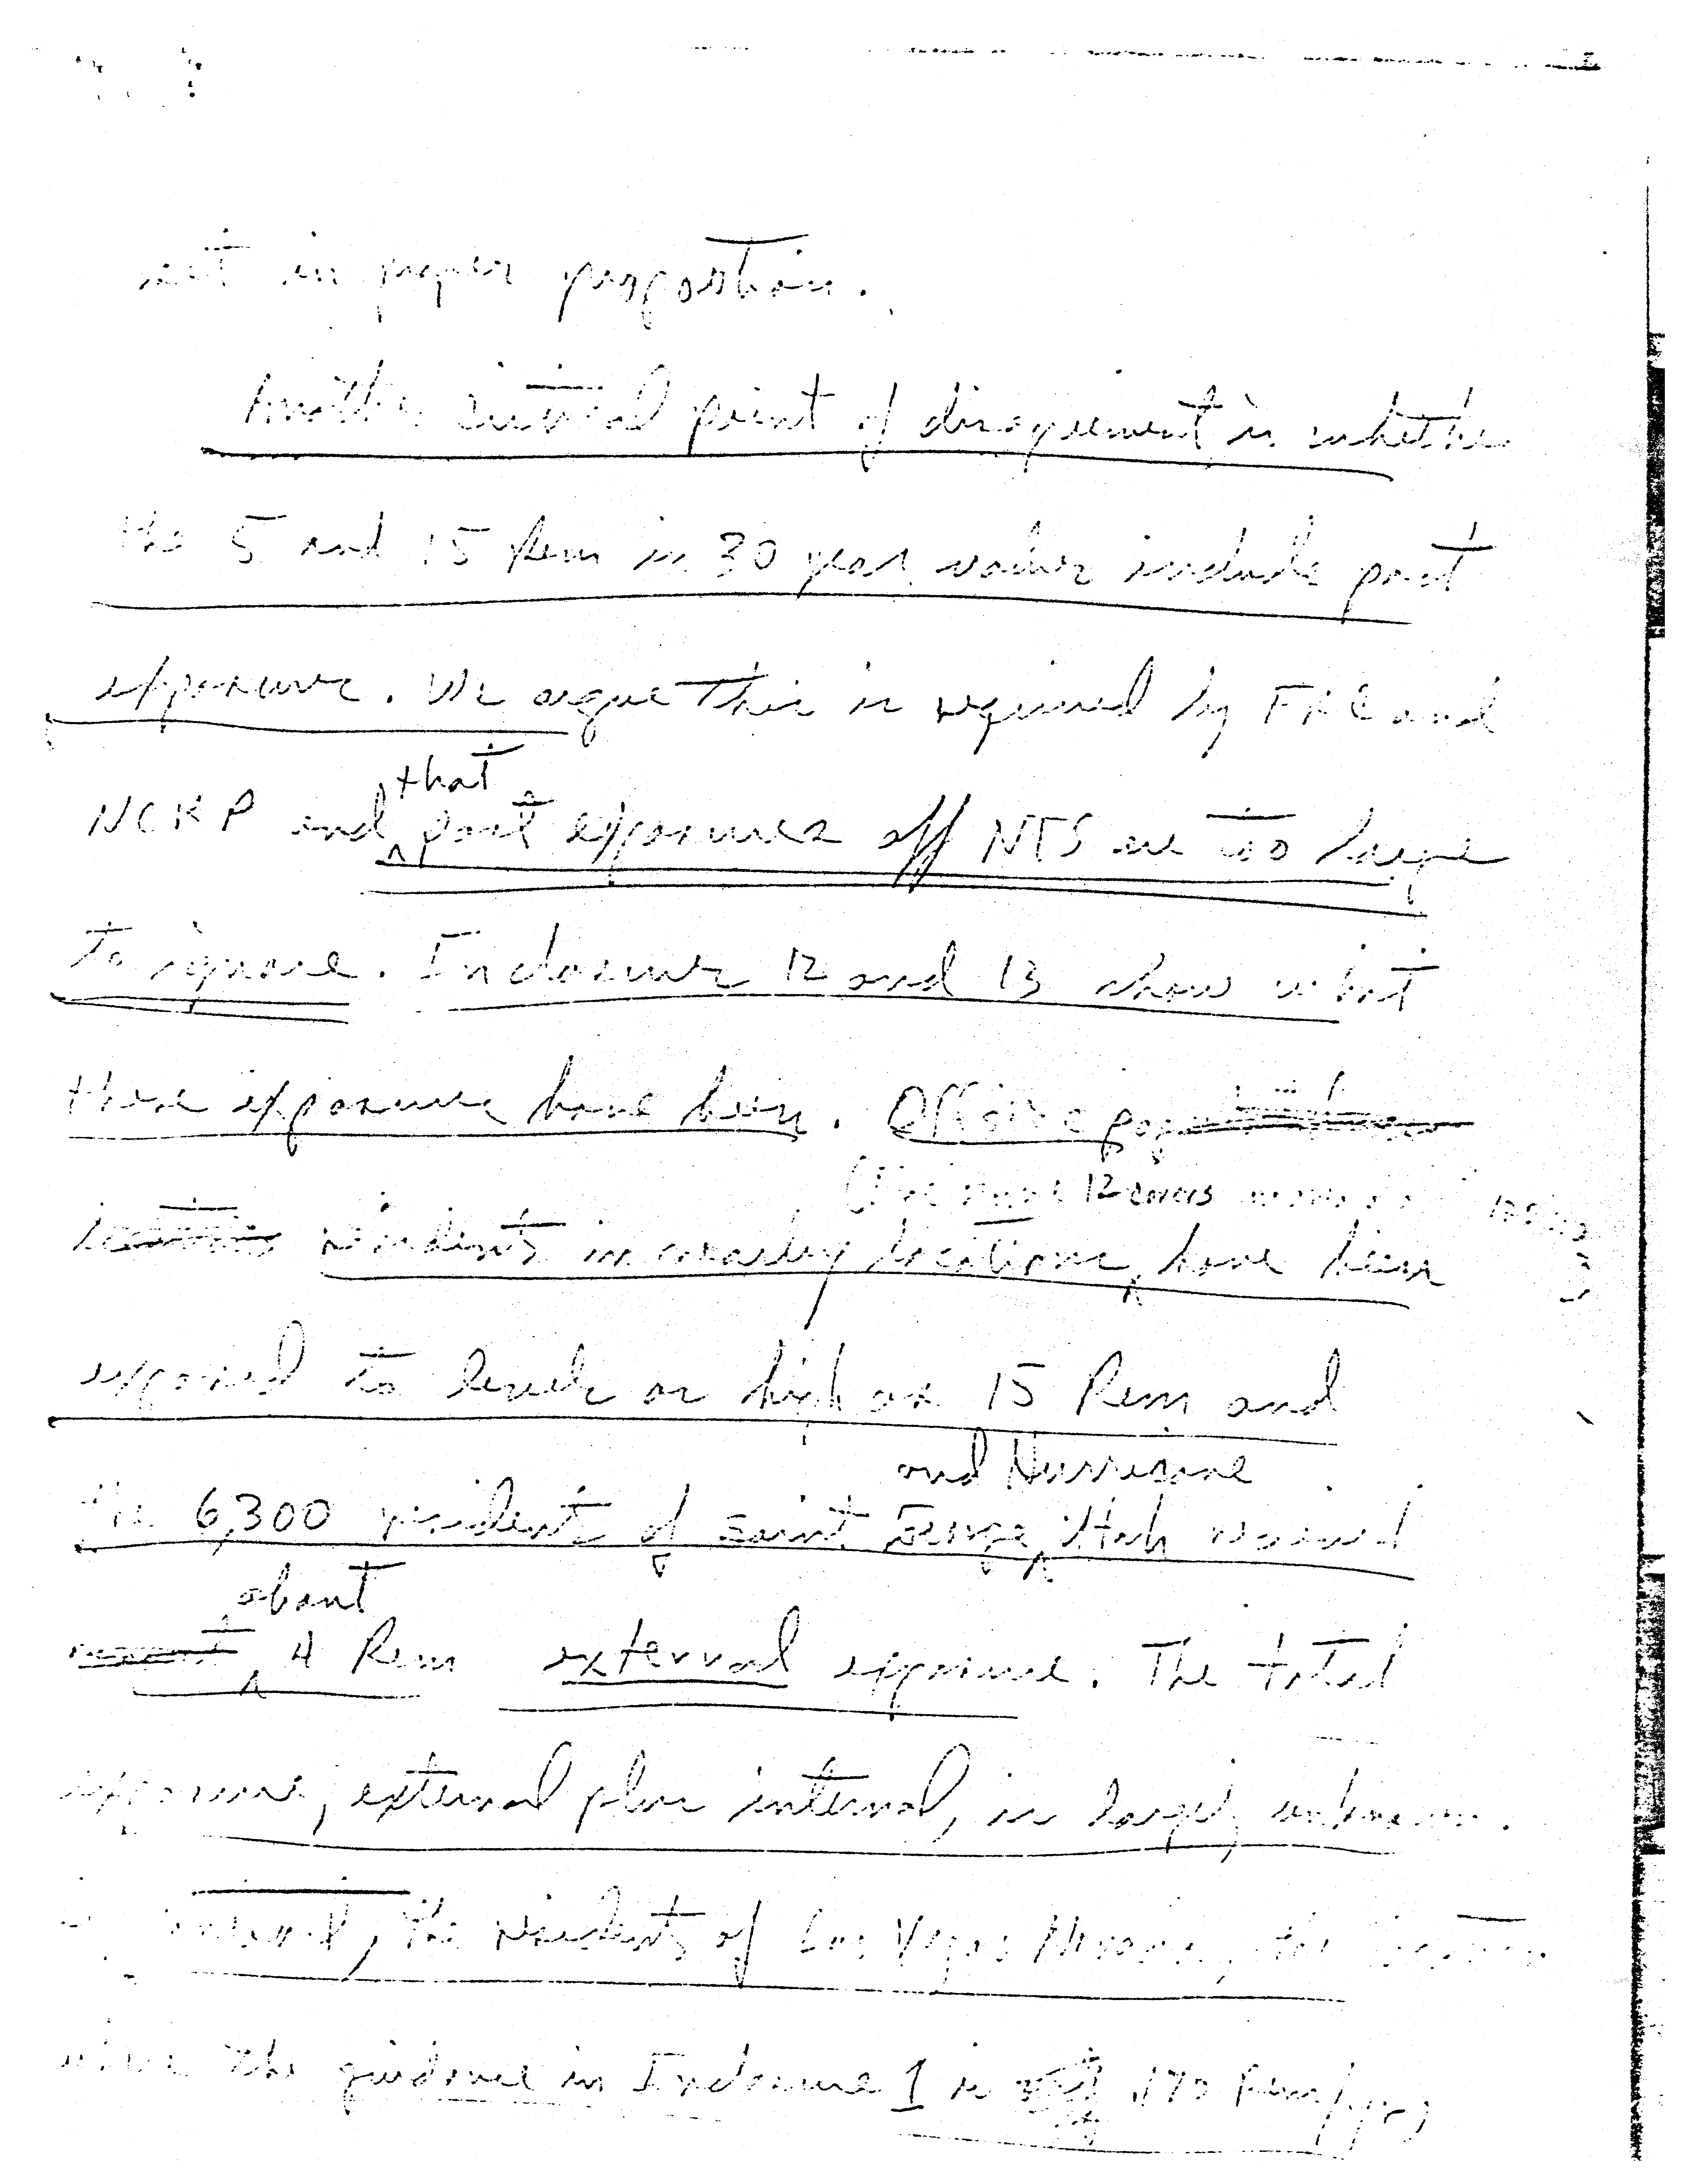 not in proper proportion.
Another critical point of disagreement is whether
the 5 and 15 Rem in 30 year values include past
exposure. We argue this is required by FRC and
NCRP and that past exposures off NTS are too large
to ignore. Inclosures 12 and 13 show what
these exposures have been. Offsite
12 covers
residents in nearby locations, have been
exposed to levels as high as 15 Rem and
the 6,300 residents of Saint George and Hurricane Utah received
about 4 Rem external exposure. The total
exposure, external plus internal, is largely unknown.
the residents of Las Vegas Nevada, the location
where the guidance in Inclosure 1 is .170 Rem/yr)